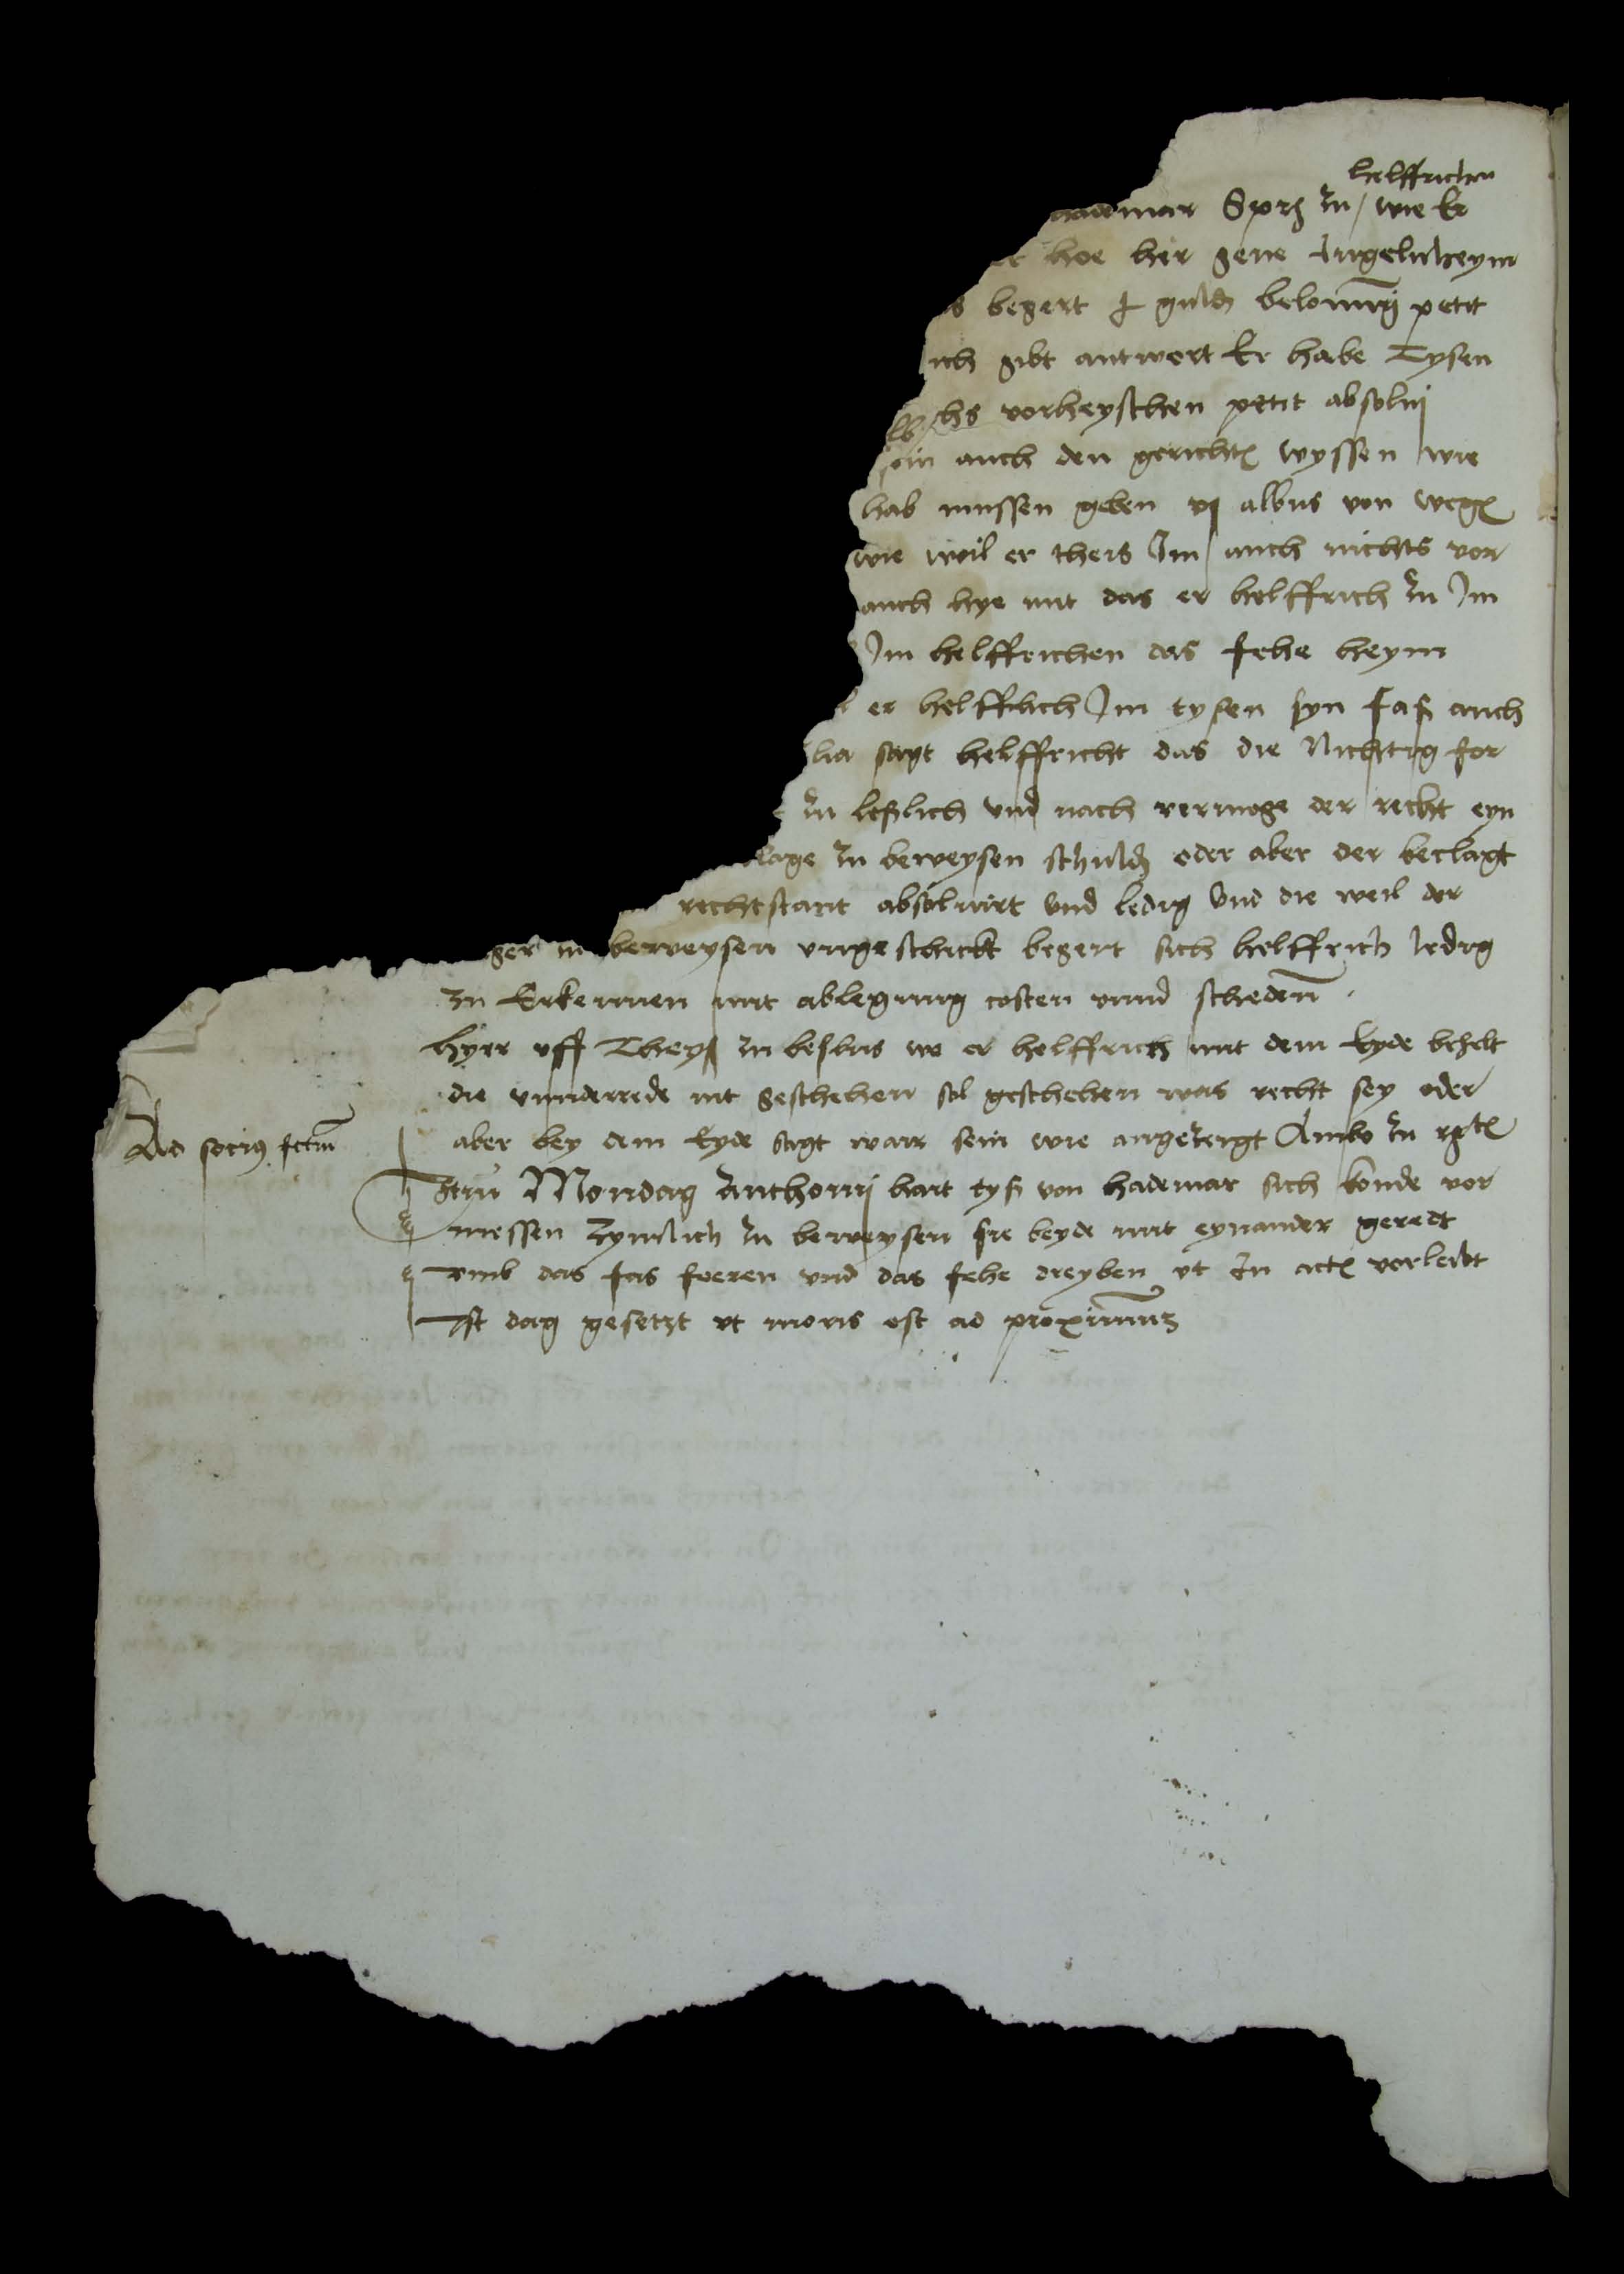 helffrichen
ademar Sprch zu wie Er
er hoe her gene Ingelnheym
s begert j guldn belonung petit
ich gibt antwort Er habe Tysen
vorheyschen petit absolui
sin auch den gerichtn wyssen wie
hab mussen geben vj albus von wegn
wie wol er theis Im auch nichts vor
auch hye mit das er helffrich zu Im
Im helffrichen das fehe heym
er helffrich Im tysen syn fas auch
lia sagt helffricht das die Nichttig for
zu leslich vnd nach vermoge der recht eyn
lage zu beweysen schuldn oder aber der beclagt
rechtstant absoluirt vnd ledig vnd die weil der
ger in beweysen vngeschickt begert sich helffrich ledig
zu Erkennen mit ablegung costen vnnd scheden
hyrr vff Theys zu beslus wo er helffrich mit dem Eyde behelt
die vnnderrede nit geschehen sol geschehen was recht sey oder
Ad sociu fctm
aber bey dem Eyde sagt warr sein wie angezeigt Ambo zu rechtn
Itm Mondag Anthonij hait tys von hademar sich konde vor
messen zymlich zu beweysen sie beyde mit eynander geredt
vmb das fas foeren vnd das fehe dreyben vt In actn vorleibt
Ist dag gesetzt vt moris est ad proximum